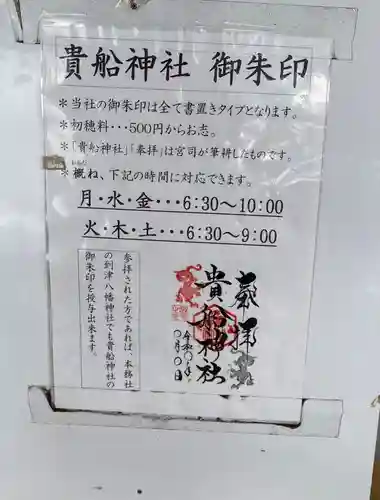 貴船神社 御朱印
＊当社の御朱印は全て書置きタイプとなります。
＊初穂料・・・500円からお志。
＊「貴船神社」「奉拝」は宮司が筆耕したものです。
＊概ね、下記の時間に対応できます。
月・水・金・・・6:30～10:00
火・木・土・・・6:30～9:00
参拝された方であれば、本務社
の到津八幡神社でも貴船神社の
御朱印を授与出来ます。
奉拝
貴船神社
令和〇年
〇月〇日